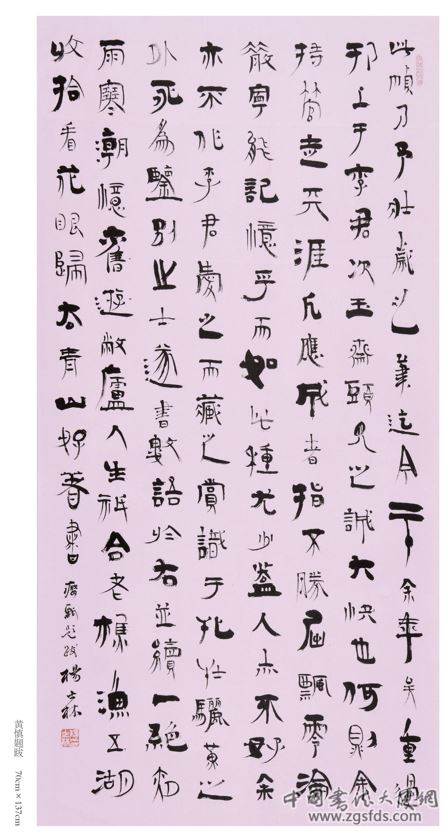 此幀乃予壮歲之筆迄今二十余年矣重過
邗上于李君次玉齋頭見之誠大快也何則余
持管走天涯凡應咸者指不勝屈飄零淪
散寧能記憶乎而如此種尤少蓋人亦不好余
亦不作李君爱之而藏之賞識于牝牡驪黄之
外為鑒別之士遂書數語於右並續一絶初
雨寒潮憶舊遊敝廬人生祇合老樵漁五湖
收拾看花眼歸去青山好著書 癭瓢題跋 楊士林
黄慎题跋 70cm×137cm
中国书法大厦网
www.zgsfds.com